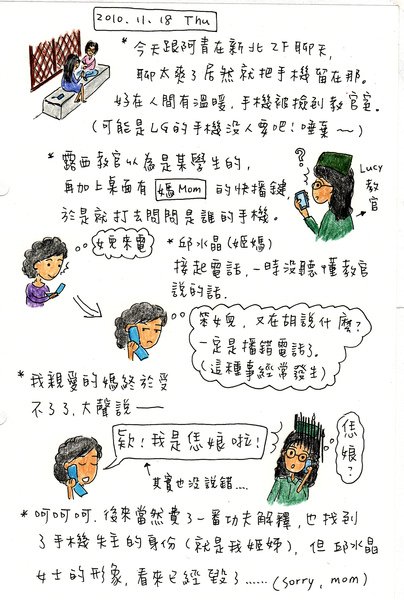 2010.11.18 Thu
*今天跟阿青在新北2F聊天,
聊太爽了居然就把手機留在那。
好在人間有溫暖,手機被撿到教官室。
(可能是LG的手機没人要吧!唾棄~)
*露西教官以為是某學生的,
再加上桌面有 媽Mom 的快播鍵,
於是就打去問問是誰的手機。
?
Lucy教官
女兒來電
*邱水晶(姬媽)
接起電話,一時没聽懂教官
說的話.
笨女兒,又在胡說什麼?
一定是播錯電話了。
(這種事經常發生)
*我親愛的媽終於受
不了了,大聲說——
欸!我是恁娘啦!
恁娘?
其實也没說錯....
*呵呵呵.後來當然費了一番功夫解釋,也找到
了手機失主的身份(就是我姬姊),但邱水晶
女士的形象,看來已經毀了......(sorry, mom)